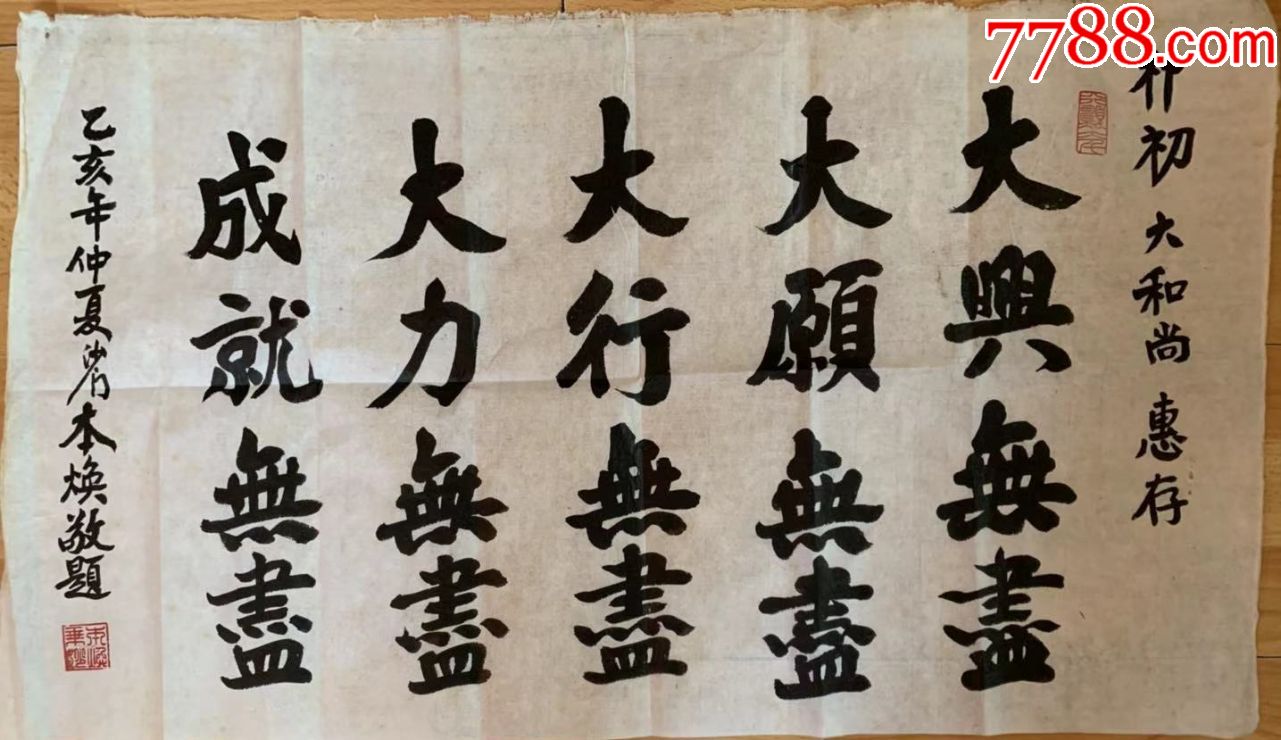 7788.com
朴初大和尚惠存
大興無盡
大願無盡
大行無盡
大力無盡
成就無盡
乙亥年仲夏沙门本焕敬題